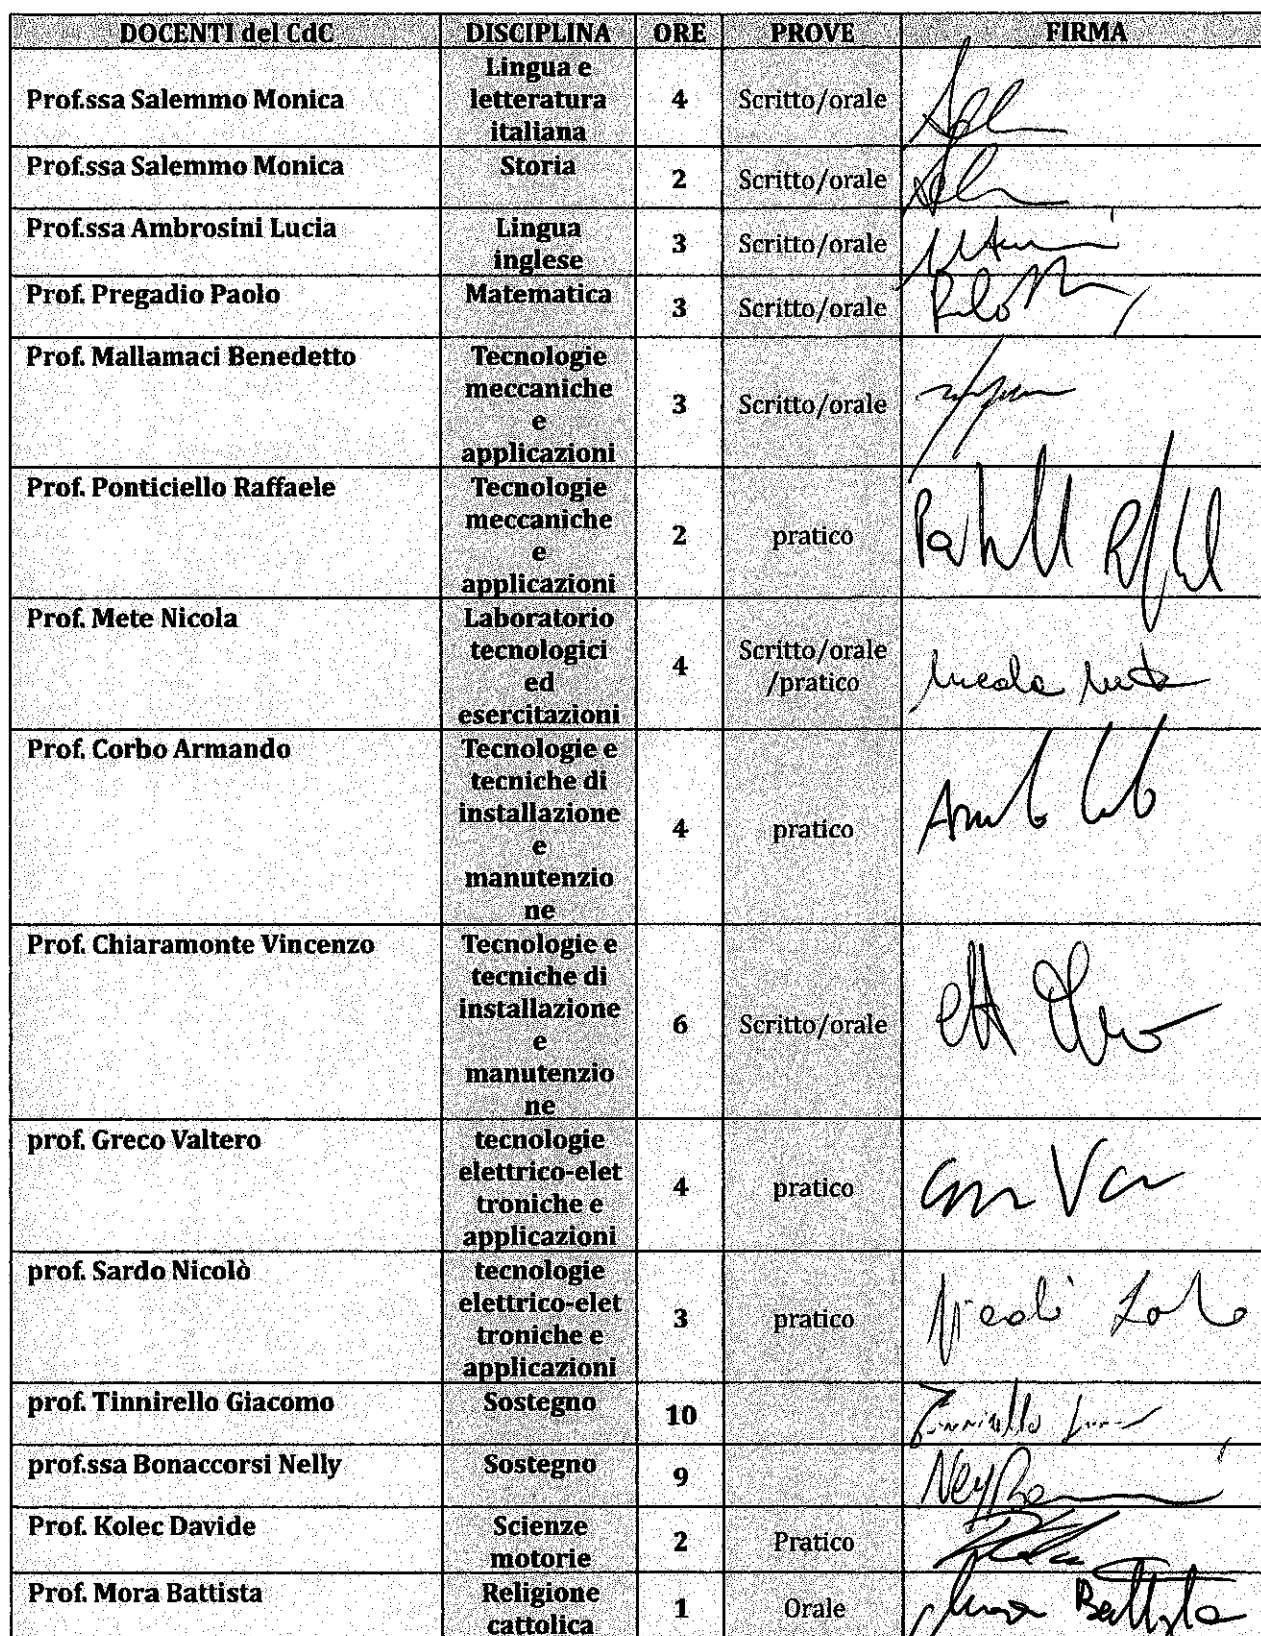 DOCENTI del CdC DISCIPLINA ORE PROVE FIRMA
Prof.ssa Salemmo Monica Lingua e letteratura italiana 4 Scritto/orale
Prof.ssa Salemmo Monica Storia 2 Scritto/orale
Prof.ssa Ambrosini Lucia Lingua inglese 3 Scritto/orale
Prof. Pregadio Paolo Matematica 3 Scritto/orale
Prof. Mallamaci Benedetto Tecnologie meccaniche e applicazioni 3 Scritto/orale
Prof. Ponticiello Raffaele Tecnologie meccaniche e applicazioni 2 pratico
Prof. Mete Nicola Laboratorio tecnologici ed esercitazioni 4 Scritto/orale /pratico Nicola Mete
Prof. Corbo Armando Tecnologie e tecniche di installazione e manutenzio ne 4 pratico
Prof. Chiaramonte Vincenzo Tecnologie e tecniche di installazione e manutenzio ne 6 Scritto/orale
prof. Greco Valtero tecnologie elettrico-elet troniche e applicazioni 4 pratico
prof. Sardo Nicolò tecnologie elettrico-elet troniche e applicazioni 3 pratico
prof. Tinnirello Giacomo Sostegno 10 Tinnirello
prof.ssa Bonaccorsi Nelly Sostegno 9
Prof. Kolec Davide Scienze motorie 2 Pratico
Prof. Mora Battista Religione cattolica 1 Orale Mora Battista